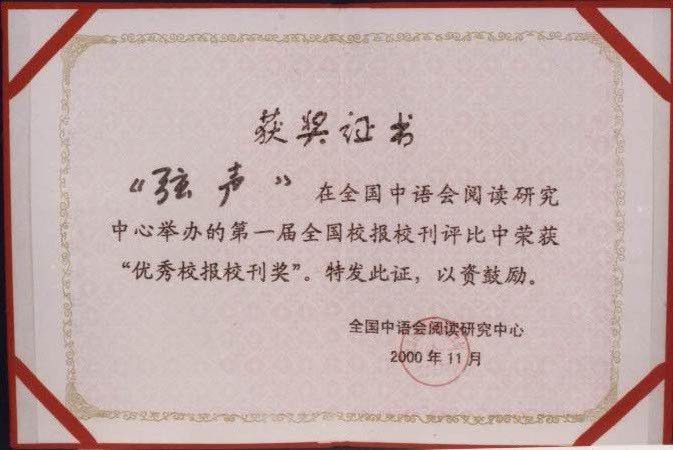 获奖证书
“弦声”在全国中语会阅读研究
中心举办的第一届全国校报校刊评比中荣获
“优秀校报校刊奖”。特发此证，以资鼓励。
全国中语会阅读研究中心
2000年11月